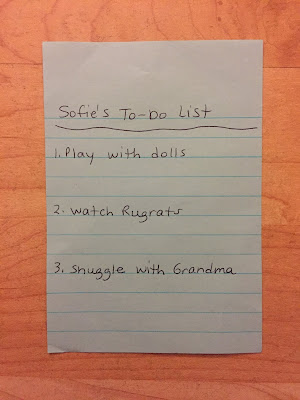 Sofie's To-Do List
1. Play with dolls
2. Watch Rugrats
3. Snuggle with Grandma